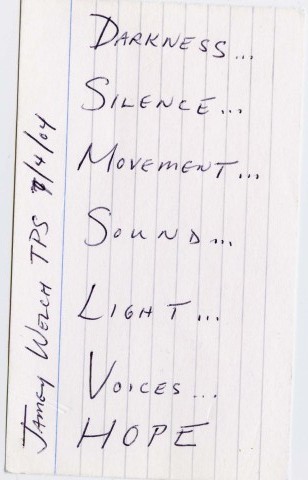 DARKNESS...
SILENCE...
MOVEMENT...
SOUND...
LIGHT...
VOICES...
HOPE
JAMEY WELCH TPS 7/4/04